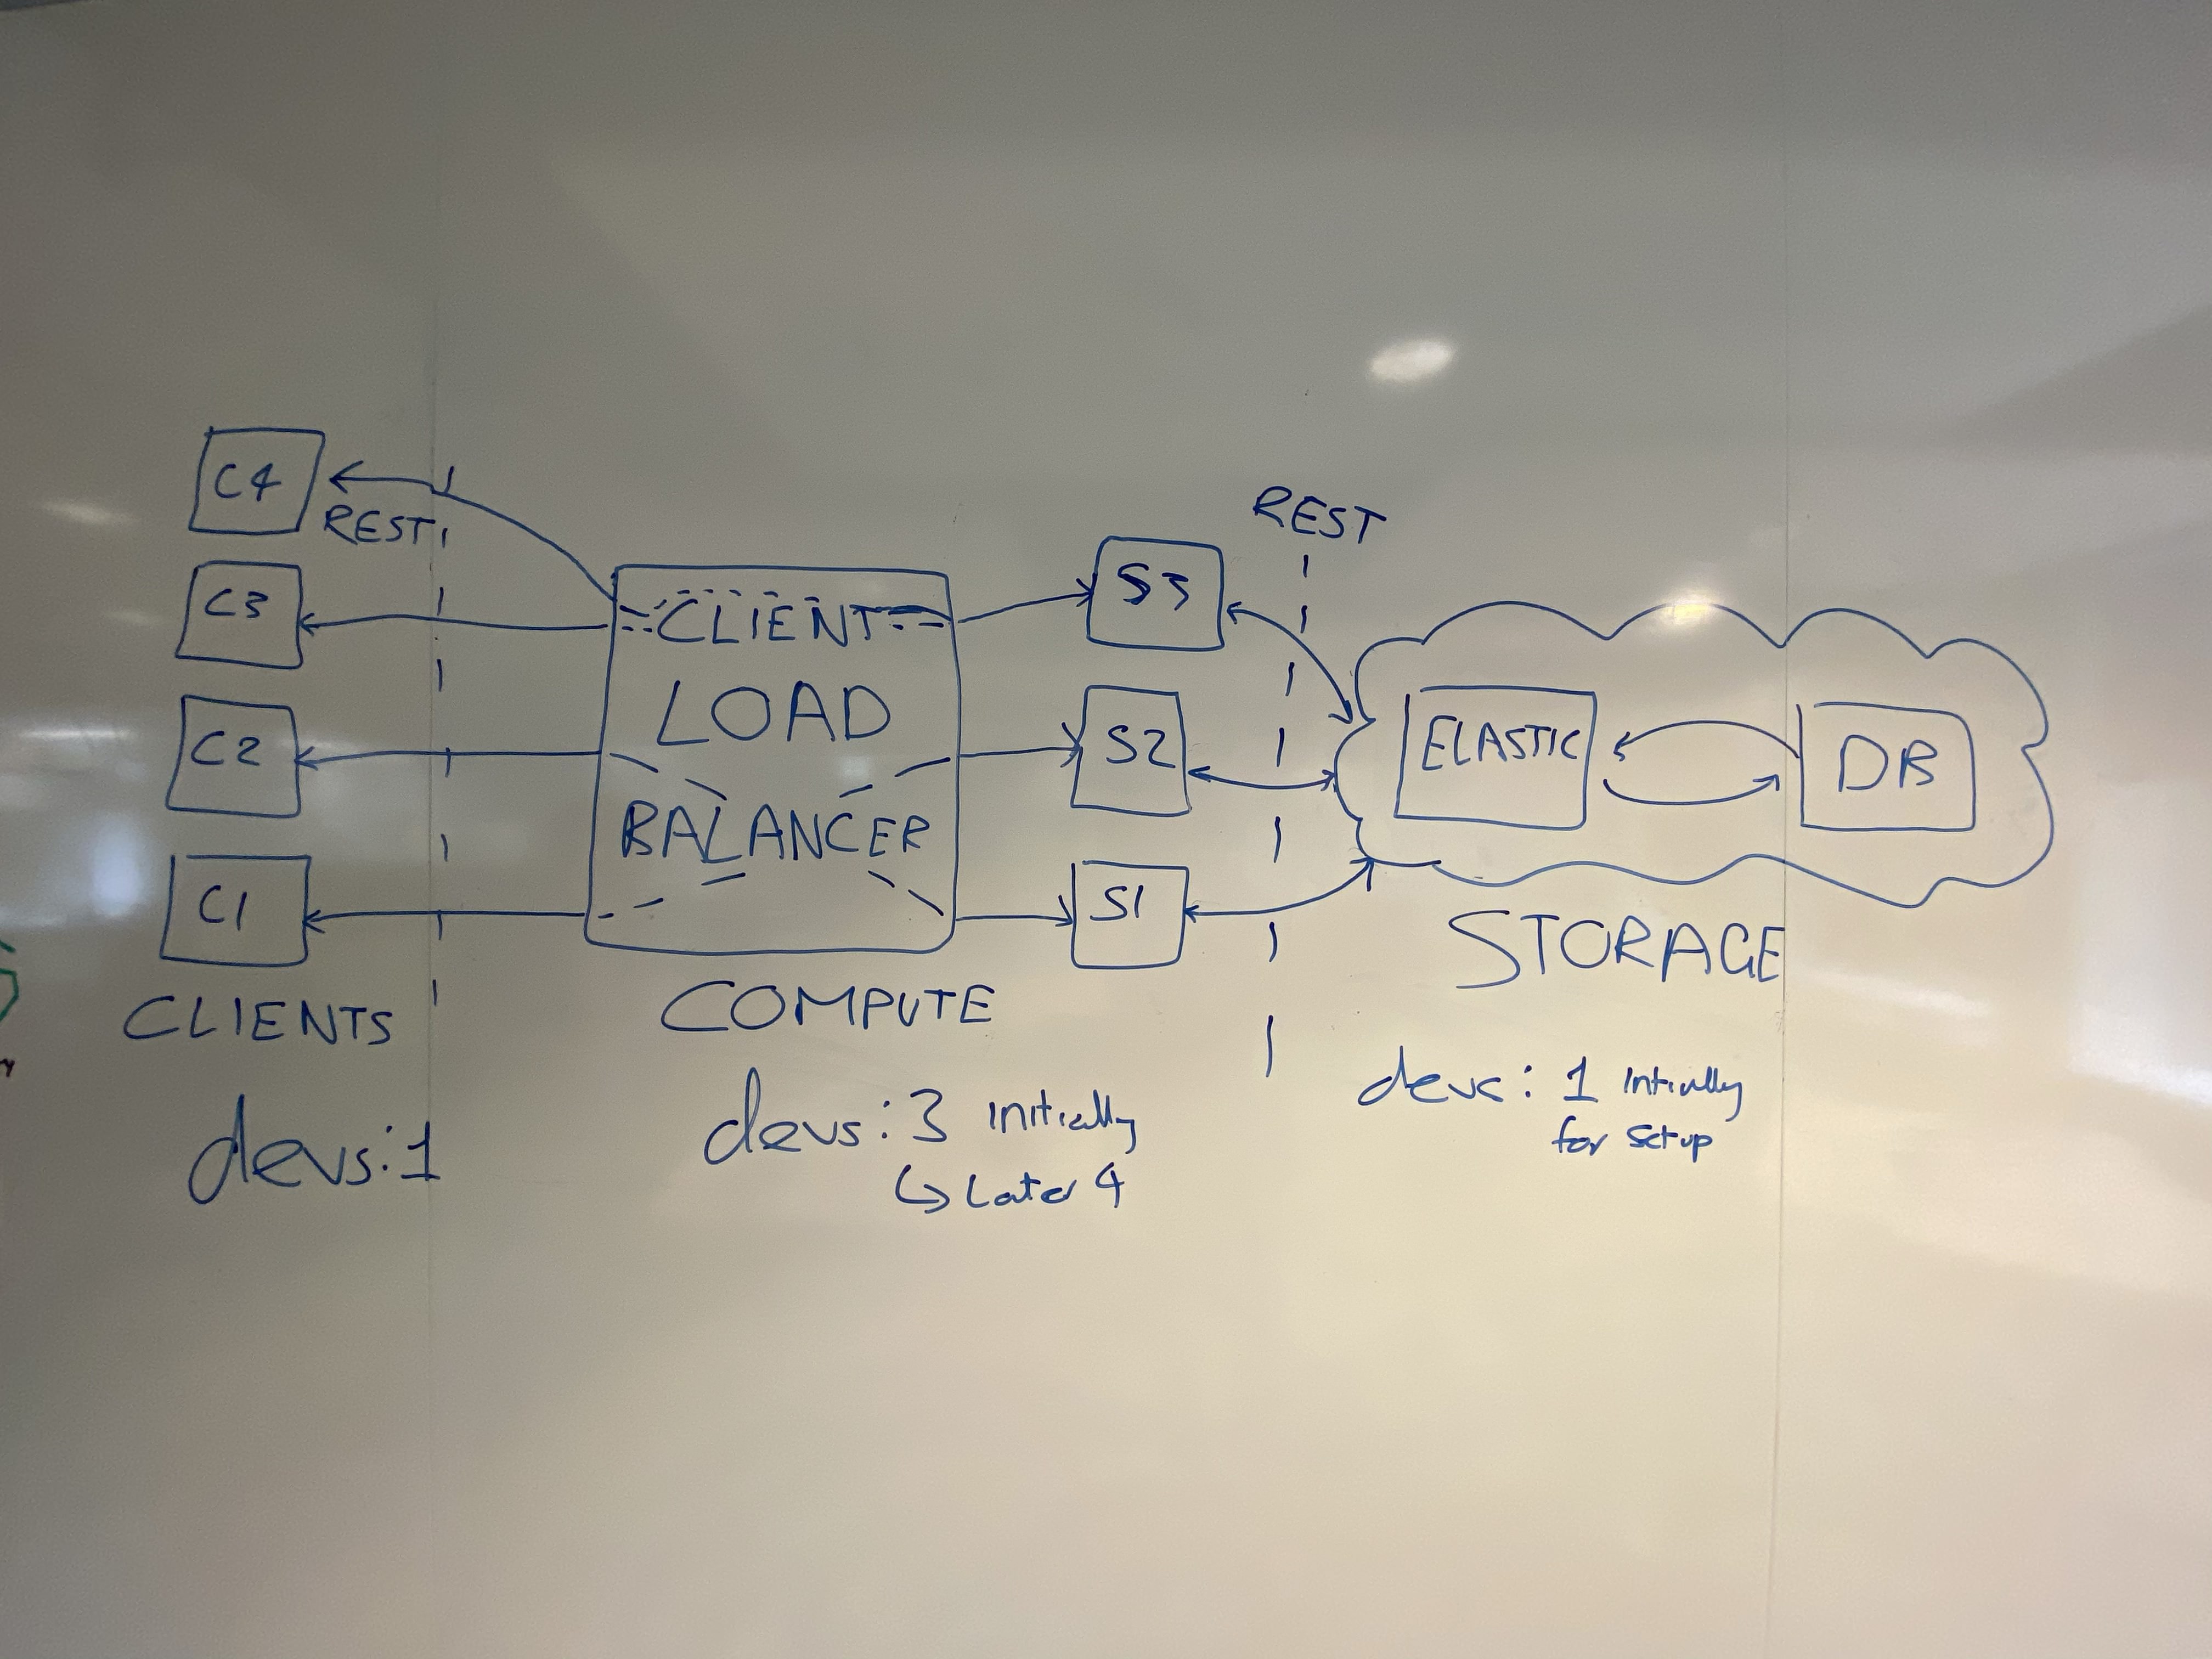 C4
REST
C3
C2
C1
CLIENTS
devs: 1
CLIENT
LOAD
BALANCER
COMPUTE
devs: 3 initially
↳ Later 4
S3
S2
S1
REST
ELASTIC
DB
STORAGE
devs: 1 Intially
for setup